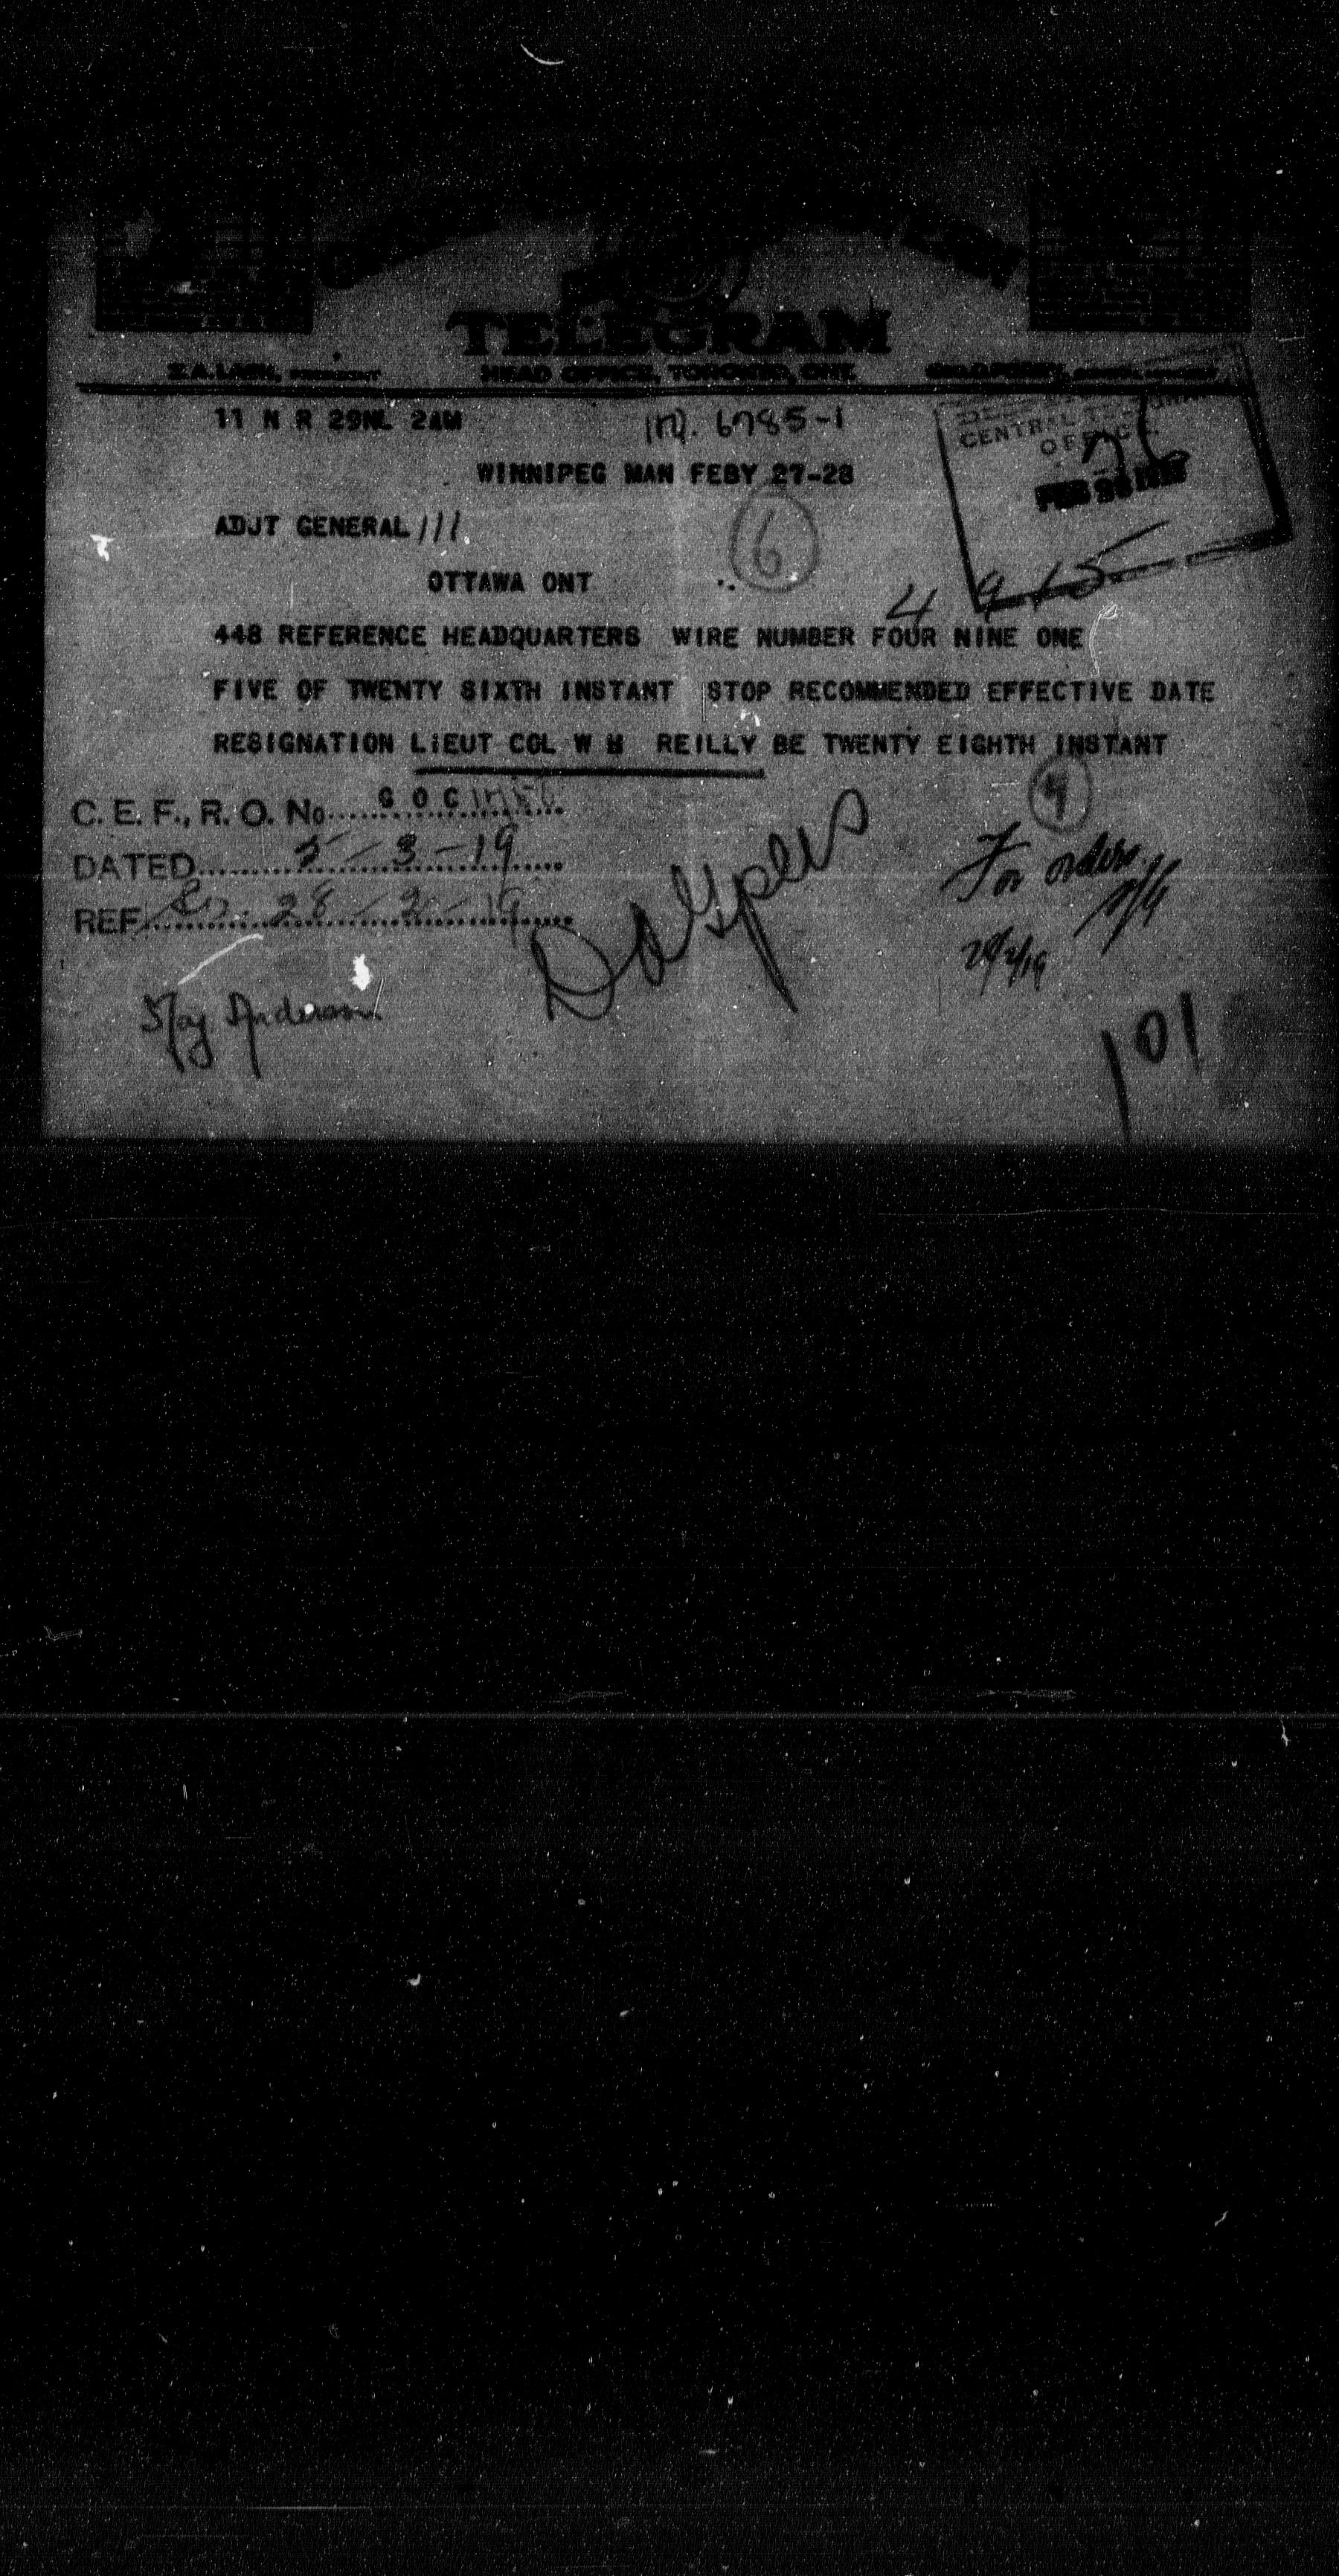 TELEGRAM
Z.A. LASH, PRESIDENT HEAD OFFICE, TORONTO, ONT.
11 N R 29NL 2AM
6785-1
CENTRAL
OFFICE
WINNIPEG MAN FEBY 27-28
ADJT GENERAL ///
6
OTTAWA ONT
4 9 15
448 REFERENCE HEADQUARTERS WIRE NUMBER FOUR NINE ONE
FIVE OF TWENTY SIXTH INSTANT STOP RECOMMENDED EFFECTIVE DATE
RESIGNATION LIEUT COL W H REILLY BE TWENTY EIGHTH INSTANT
C. E. F., R. O. No. G O C
DATED 5-3-19
REF. 28-2-19
For orders
28/2/19
Maj. Anderson
101